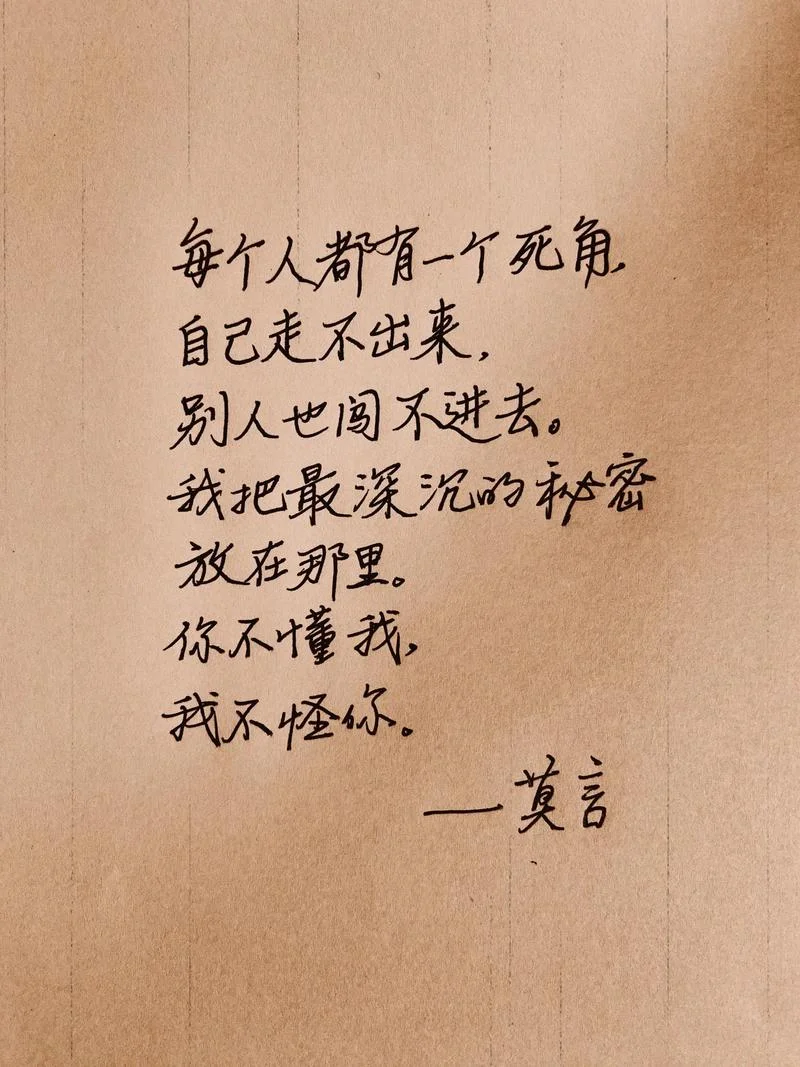 每个人都有一个死角,
自己走不出来,
别人也闯不进去。
我把最深沉的秘密
放在那里。
你不懂我,
我不怪你。
—莫言